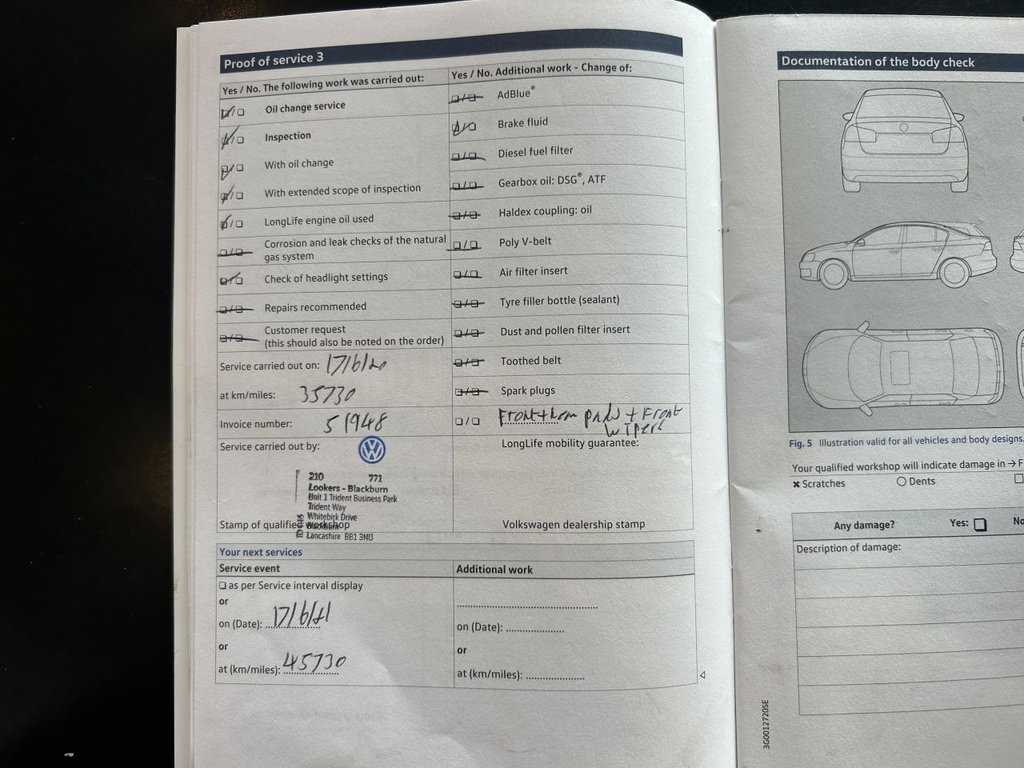 Proof of service 3
Yes / No. The following work was carried out:
Oil change service
Inspection
With oil change
With extended scope of inspection
LongLife engine oil used
Corrosion and leak checks of the natural
gas system
Check of headlight settings
Repairs recommended
Customer request
(this should also be noted on the order)
Service carried out on: 17/6/20
at km/miles: 35730
Invoice number: 51948
Service carried out by:
210 771
Lookers - Blackburn
Unit 1 Trident Business Park
Trident Way
Whitebirk Drive
Blackburn
Lancashire BB1 3NU
Stamp of qualified workshop
Yes / No. Additional work - Change of:
AdBlue®
Brake fluid
Diesel fuel filter
Gearbox oil: DSG®, ATF
Haldex coupling: oil
Poly V-belt
Air filter insert
Tyre filler bottle (sealant)
Dust and pollen filter insert
Toothed belt
Spark plugs
Front + rear pads + Front
wipers
LongLife mobility guarantee:
Volkswagen dealership stamp
Your next services
Service event
as per Service interval display
or
on (Date): 17/6/21
or
at (km/miles): 45730
Additional work
on (Date):
or
at (km/miles):
Documentation of the body check
Fig. 5 Illustration valid for all vehicles and body designs.
Your qualified workshop will indicate damage in → F
× Scratches
Dents
Any damage?
Yes:
No
Description of damage:
3G0012720SE